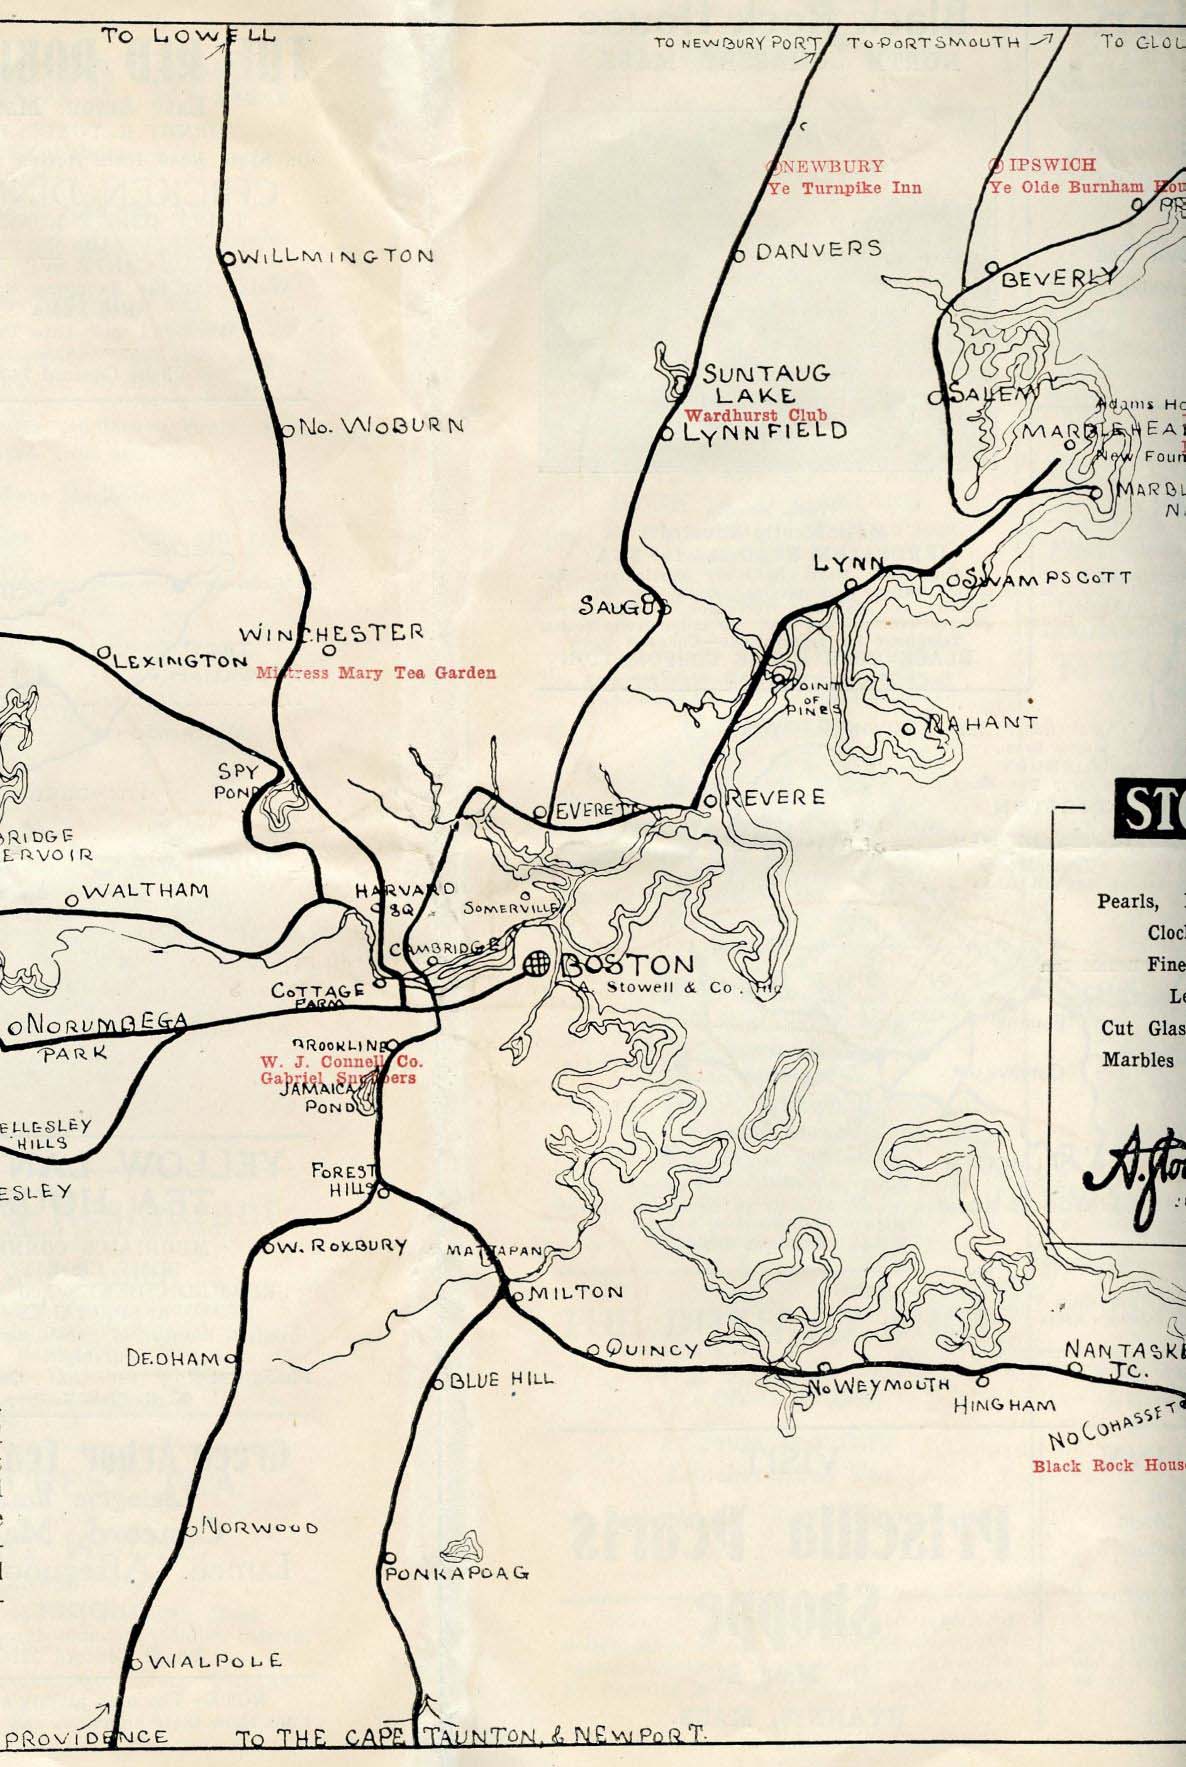 TO LOWELL
TO NEWBURY PORT
TO PORTSMOUTH
TO GLOU
NEWBURY
Ye Turnpike Inn
IPSWICH
Ye Olde Burnham Hou
PR
WILLMINGTON
DANVERS
BEVERLY
SUNTAUG
LAKE
Wardhurst Club
LYNNFIELD
SALEM
Adams Ho
MARBLEHEA
New Foun
MARBL
N
No. WOBURN
LYNN
SWAMPSCOTT
SAUGUS
WINCHESTER
Mistress Mary Tea Garden
LEXINGTON
POINT
OF
PINES
NAHANT
SPY
POND
EVERETT
REVERE
STO
BRIDGE
ERVOIR
WALTHAM
HARVARD
SQ
SOMERVILLE
Pearls,
Cloc
Fine
Le
Cut Glas
Marbles
CAMBRIDGE
BOSTON
A. Stowell & Co., Inc
COTTAGE
FARM
NORUMBEGA
PARK
BROOKLINE
W. J. Connell Co.
Gabriel
JAMAICA
POND
ELLESLEY
HILLS
ESLEY
FOREST
HILLS
A. Sto
W. ROXBURY
MATTAPAN
MILTON
DEDHAM
QUINCY
BLUE HILL
No WEYMOUTH
HINGHAM
NANTASKE
JC.
NO COHASSET
Black Rock Hous
NORWOOD
PONKAPOAG
WALPOLE
PROVIDENCE
TO THE CAPE TAUNTON, & NEWPORT.